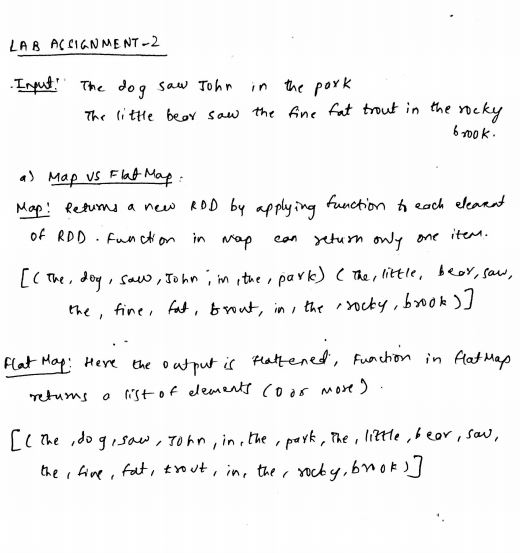 LAB ASSIGNMENT-2
Input: The dog saw John in the park
The little bear saw the fine fat trout in the rocky
brook.
a) Map vs Flat Map:
Map: Returns a new RDD by applying function to each element
of RDD. Function in Map can return only one item.
[(The, dog, saw, John, in, the, park) (The, little, bear, saw,
the, fine, fat, trout, in, the, rocky, brook)]
Flat Map: Here the output is flattened, Function in flatMap
returns a list of elements (0 or more).
[(The, dog, saw, John, in, the, park, The, little, bear, saw,
the, fine, fat, trout, in, the, rocky, brook)]